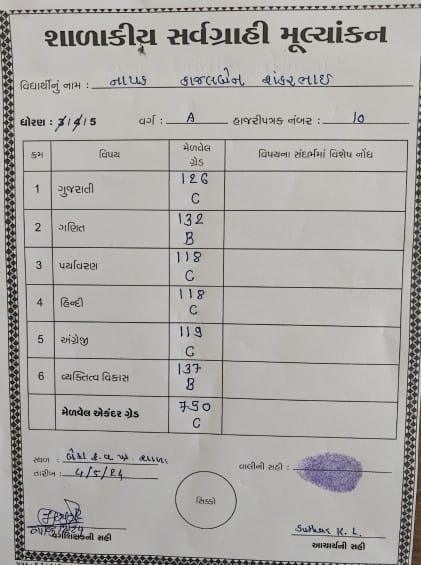 શાળાકીય સર્વગ્રાહી મૂલ્યાંકન
વિદ્યાર્થીનું નામ : નાયક કાજલબેન શંકરભાઈ
ધોરણ : 3 / 4 / 5 વર્ગ : A હાજરીપત્રક નંબર : 10
ક્રમ વિષય મેળવેલ ગ્રેડ વિષયના સંદર્ભમાં વિશેષ નોંધ
1 ગુજરાતી 126 C
2 ગણિત 132 B
3 પર્યાવરણ 118 C
4 હિન્દી 118 C
5 અંગ્રેજી 119 C
6 વ્યક્તિત્વ વિકાસ 137 B
મેળવેલ એકંદર ગ્રેડ 750 C
સ્થળ : પ્રા. શાળા
તારીખ : 4/5/24 વાલીની સહી :
સિક્કો
વર્ગશિક્ષકની સહી
Suthar K. L.
આચાર્યની સહી